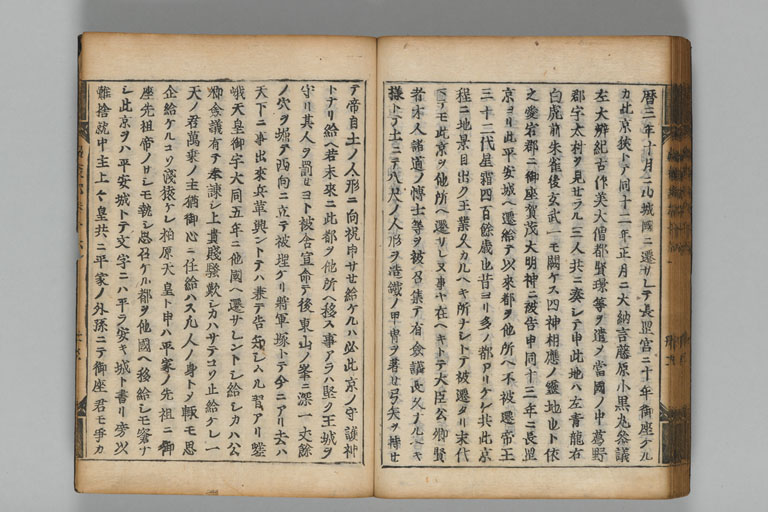 暦三年十月二山城國ニ遷サレテ長罡宮ニ十年御座ケル
カ此京狹トテ同十二年正月ニ大納言藤原小黒丸參議
左大辨紀古作美大僧都賢璟等ヲ遣メ當國ノ中葛野
郡宇太村ヲ見セラル三人共ニ奏シテ申此地ハ左青龍右
白虎前朱雀後玄武一モ闕ケス四神相應ノ靈地也ト依
之愛岩郡ニ御座賀茂大明神ニ被告申同十三年ニ長罡
京ヨリ此平安城ヘ遷給テ以來都ヲ他所ヘ不被遷帝王
三十二代星霜四百餘歳也昔ヨリ多ノ都アリケレ共此京
程ニ地景目出ク王業久カルヘキ所ナシトテ被遷タリ末代
モ此京ヲ他所ヘ遷サレヌ事ヤ在ヘキトテ大臣公卿賢
者才人諸道ノ博士等ヲ被召集テ有僉議長久ノ
様トテ土ニテ八尺ノ人形ヲ造鐵ノ甲冑ヲ著セ弓矢ヲ持セ
テ帝自土ノ人形ニ向祝申サセ給ケルハ必此京ノ守護神
トナリ給ヘ若未來ニ此都ヲ他所ヘ移ス事アラハ堅ク王城ヲ
守リ其人ヲ罰セヨト被含宣命テ後東山ノ峯ニ深一丈餘
ノ穴ヲ堀テ西向ニ立テ被埋ケリ將軍塚トテ今ニアリ去ハ
天下ニ事出來兵革興ントテハ兼テ告知シムル習アリ嵯
峨天皇御宇大同五年ニ他國ヘ遷サレントシ給シカハ公
卿僉議有テ奉諫シ上貴賤騒歎シカハサテコソ止給ケレ一
天ノ君萬乗ノ主猶御心ニ任給ハス凡人ノ身トメ輙モ思
企給ケルコソ淺猿ケレ柏原天皇ト申ハ平家ノ先祖ニ御
座先祖帝ノサシモ執シ思召ケル都ヲ他國ヘ移給シモ窖ナ
シ此京ヲハ平安城トテ文字ニハ平ラ安キ城ト書リ旁以
難捨就中主上々皇共ニ平家ノ外孫ニテ御座君モ爭カ